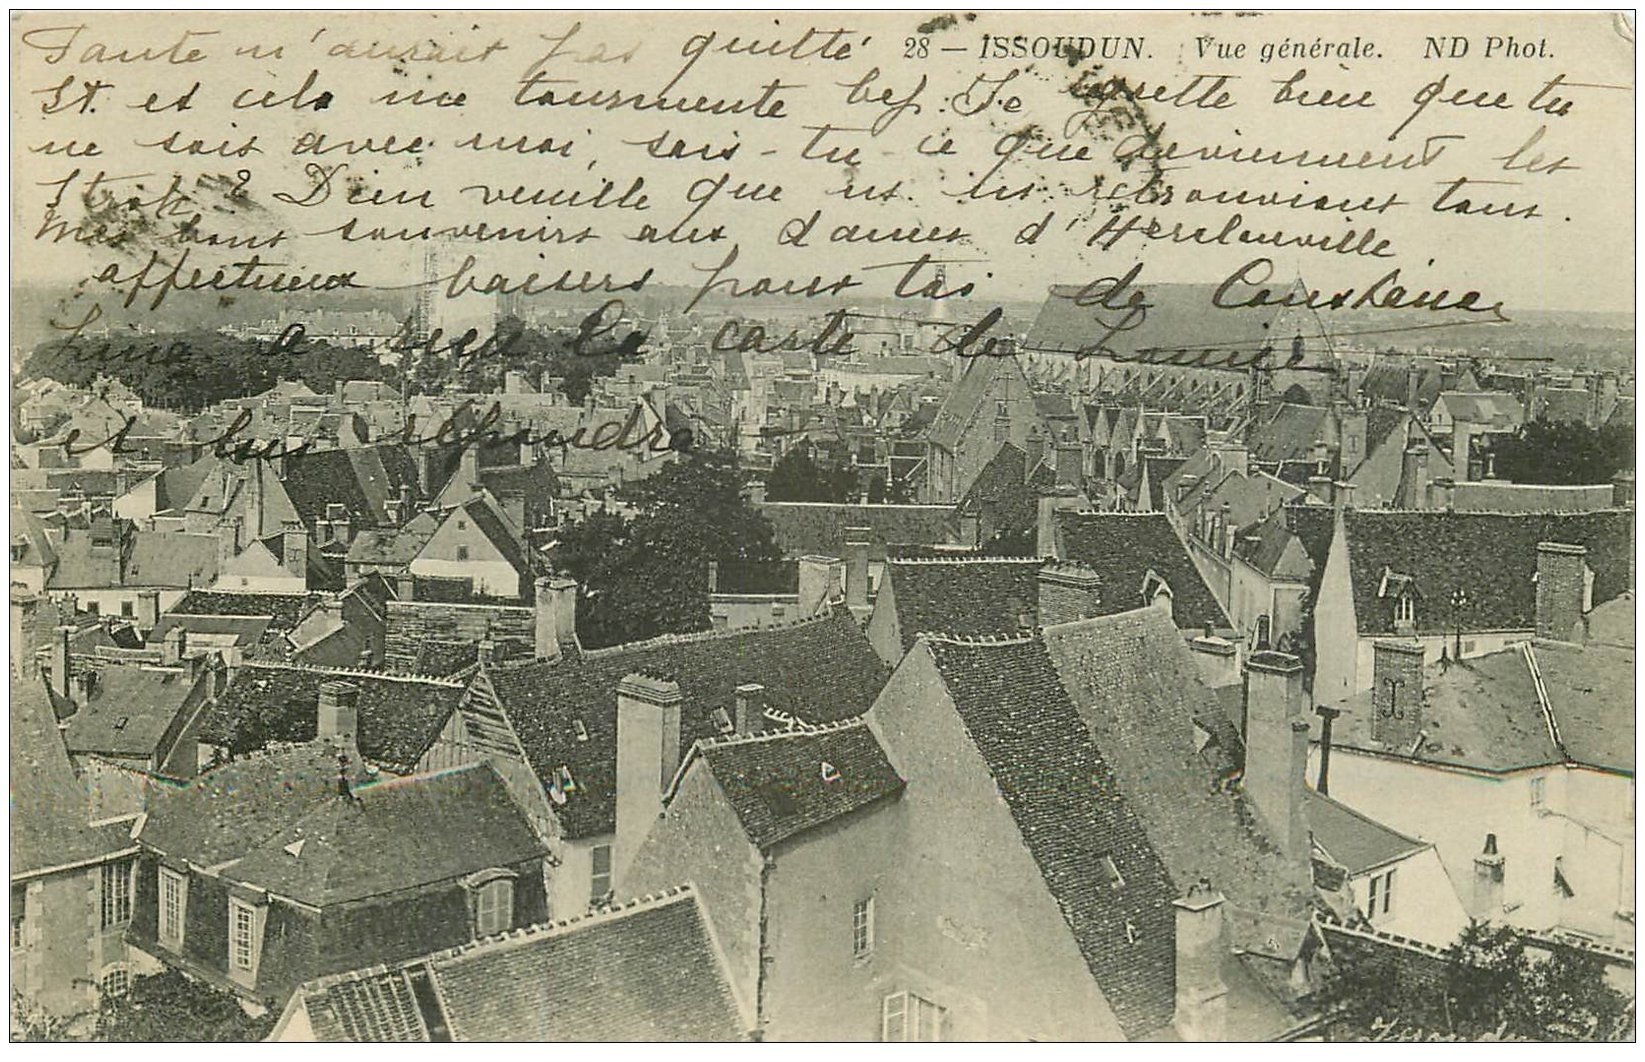 Tante n'aurait pas quitté 28 — ISSOUDUN. Vue générale. ND Phot.
St. et cela me tourmente bcp. Je regrette bien que tu
ne sois avec moi, sais-tu ce que deviennent les
? Dieu veuille que ns. ns retrouvions tous.
Mes bons souvenirs aux dames d'Herlouville
affectueux baisers pour toi de Constance
Lina a reçu la carte de Louise
et lui répondra